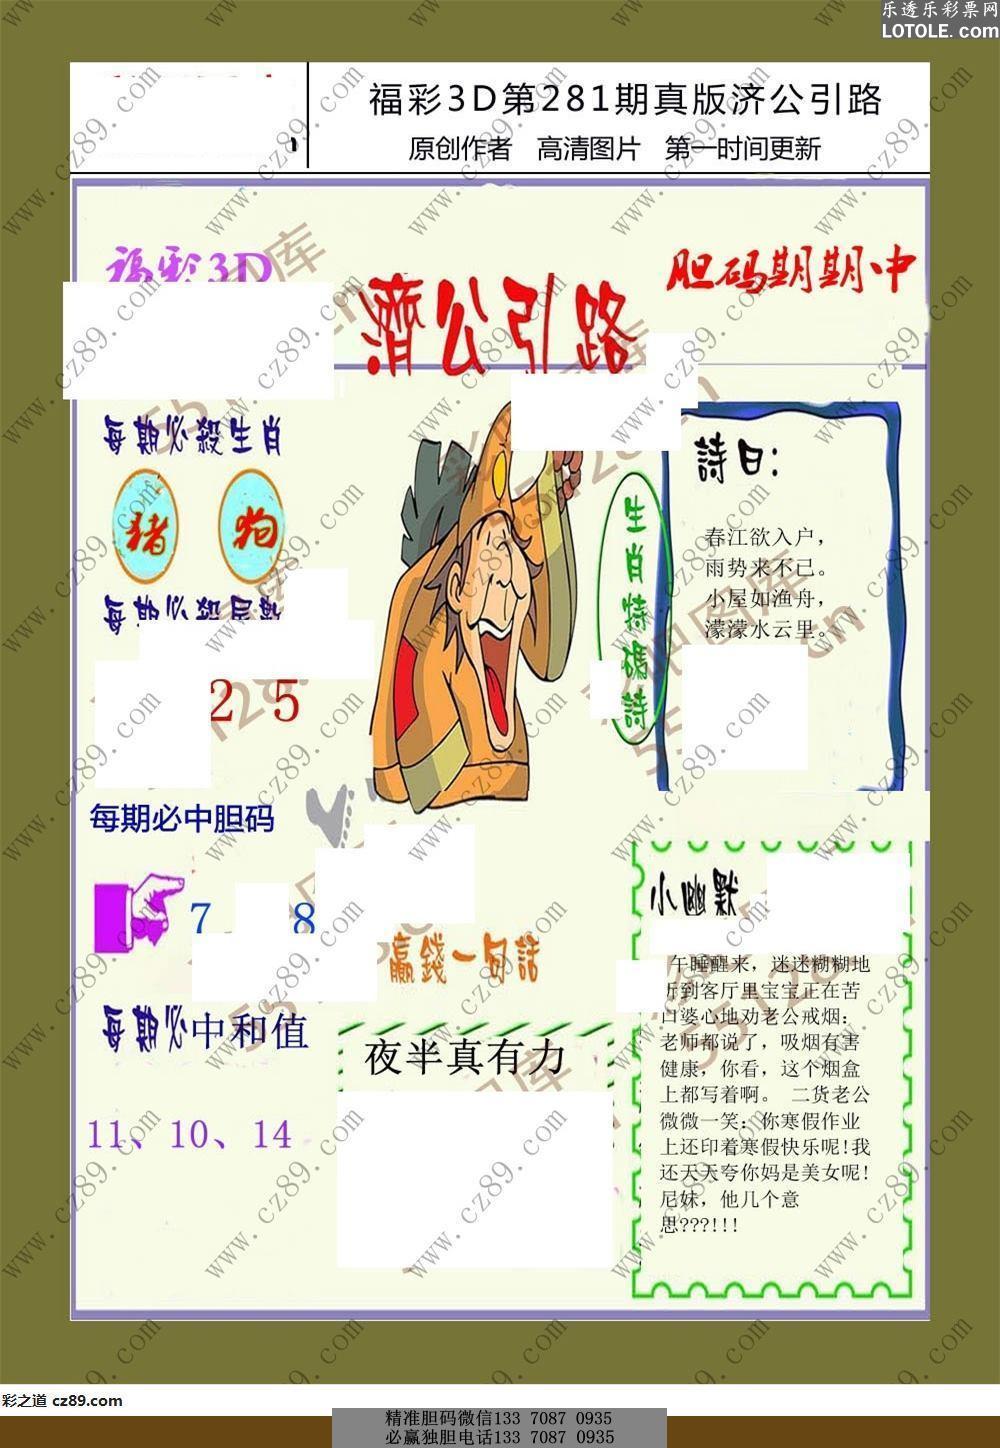 乐透乐彩票网
LOTOLE.com
福彩3D第281期真版济公引路
原创作者 高清图片 第一时间更新
福彩3D
胆码期期中
濟公引路
每期必殺生肖
猪 狗
每期必殺尾数
2 5
生肖特碼詩
詩曰:
春江欲入户，
雨势来不已。
小屋如渔舟，
濛濛水云里。
每期必中胆码
7 8
每期必中和值
11、10、14
赢錢一句話
夜半真有力
小幽默
午睡醒来，迷迷糊糊地
听到客厅里宝宝正在苦
口婆心地劝老公戒烟：
老师都说了，吸烟有害
健康，你看，这个烟盒
上都写着啊。 二货老公
微微一笑：你寒假作业
上还印着寒假快乐呢!我
还天天夸你妈是美女呢!
尼妹，他几个意
思???!!!
www.cz89.com
彩之道 cz89.com
精准胆码微信133 7087 0935
必赢独胆电话133 7087 0935